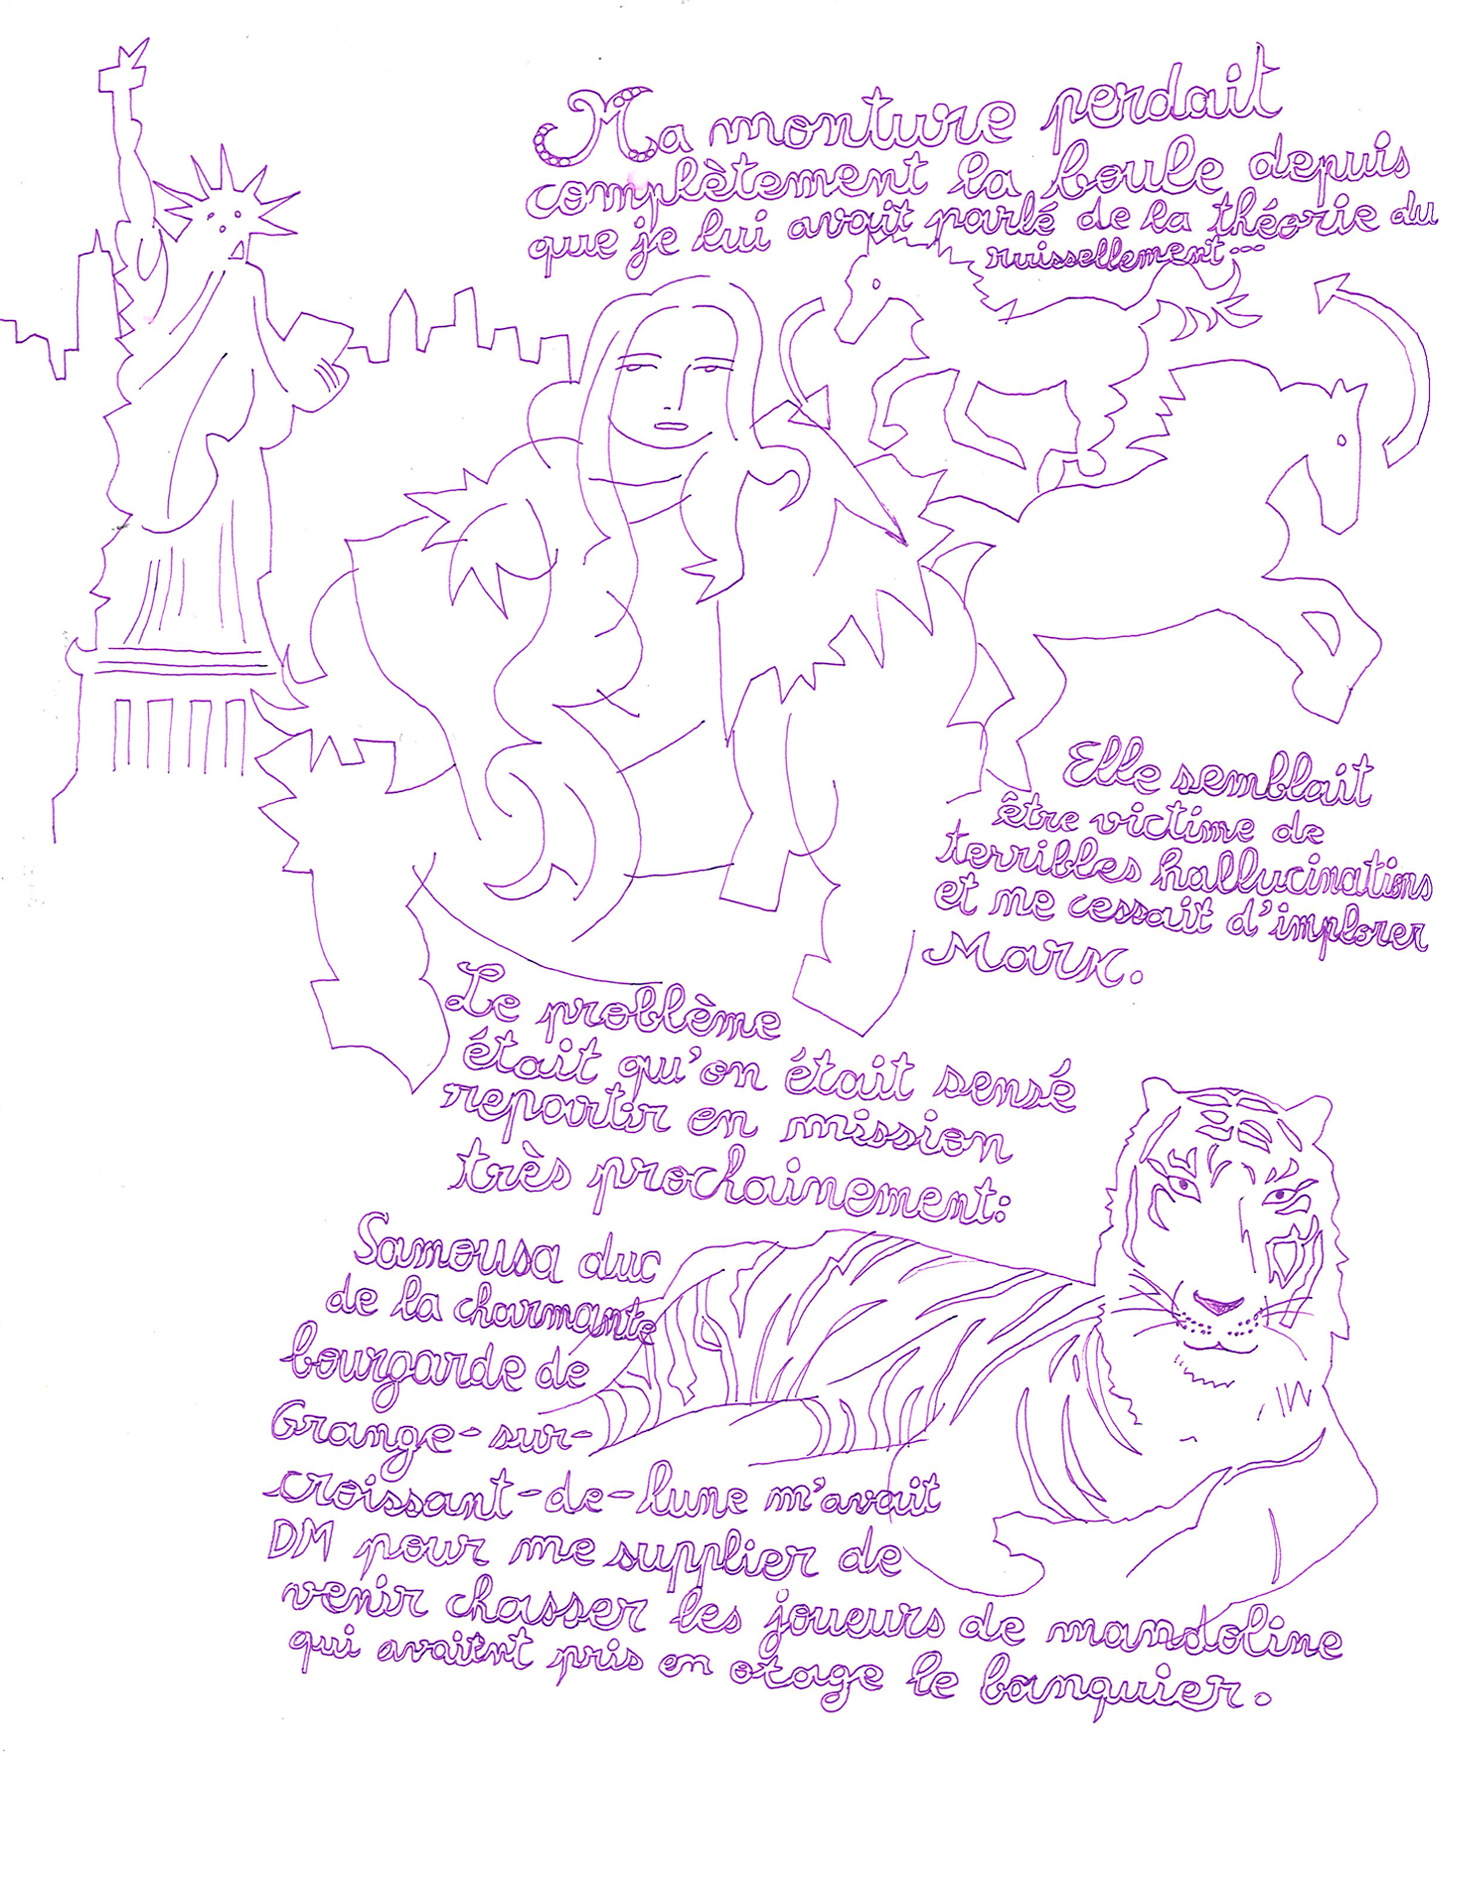 Ma monture perdait
complètement la boule depuis
que je lui avait parlé de la théorie du
ruissellement...
Elle semblait
être victime de
terribles hallucinations
et ne cessait d'implorer
Marx.
Le problème
était qu'on était sensé
repartir en mission
très prochainement:
Samousa duc
de la charmante
bourgarde de
Grange-sur-
croissant-de-lune m'avait
DM pour me supplier de
venir chasser les joueurs de mandoline
qui avaitent pris en otage le banquier.